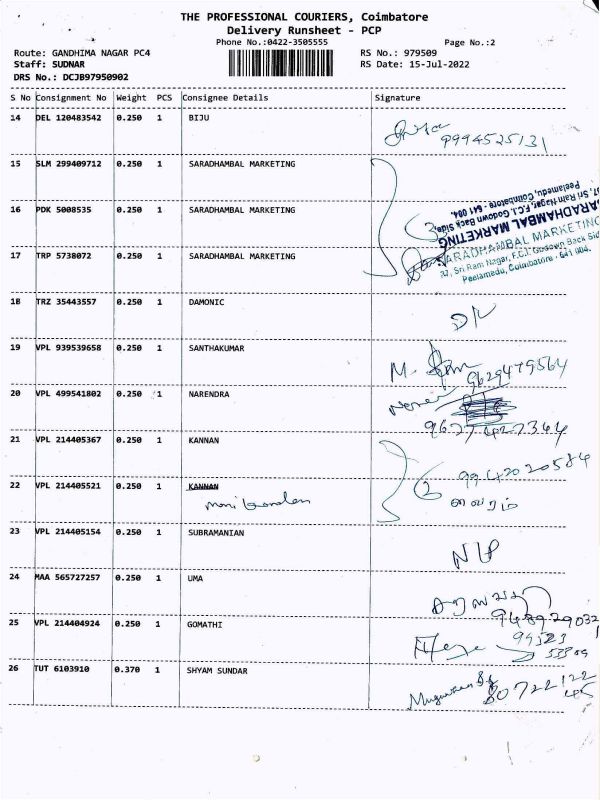 THE PROFESSIONAL COURIERS, Coimbatore
Delivery Runsheet - PCP
Phone No.:0422-3505555 Page No.:2
Route: GANDHIMA NAGAR PC4 RS No.: 979509
Staff: SUDNAR RS Date: 15-Jul-2022
DRS No.: DCJB97950902
S No Consignment No Weight PCS Consignee Details Signature
14 DEL 120483542 0.250 1 BIJU
9994525131
15 SLM 299409712 0.250 1 SARADHAMBAL MARKETING
16 PDK 5008535 0.250 1 SARADHAMBAL MARKETING
SARADHAMBAL MARKETING
37, Sri Ram Nagar, F.C.I. Godown Back Side,
Peelamedu, Coimbatore - 641 004.
17 TRP 5738072 0.250 1 SARADHAMBAL MARKETING
SARADHAMBAL MARKETING
37, Sri Ram Nagar, F.C.I. Godown Back Side
Peelamedu, Coimbatore - 641 004.
18 TRZ 35443557 0.250 1 DAMONIC
D/L
19 VPL 939539658 0.250 1 SANTHAKUMAR
M.
9629479564
20 VPL 499541802 0.250 1 NARENDRA
9677427364
21 VPL 214405367 0.250 1 KANNAN
9942020584
22 VPL 214405521 0.250 1 KANNAN
manikandan
2
23 VPL 214405154 0.250 1 SUBRAMANIAN
24 MAA 565727257 0.250 1 UMA
948929032
25 VPL 214404924 0.250 1 GOMATHI
99523
26 TUT 6103910 0.370 1 SHYAM SUNDAR
80722122
45